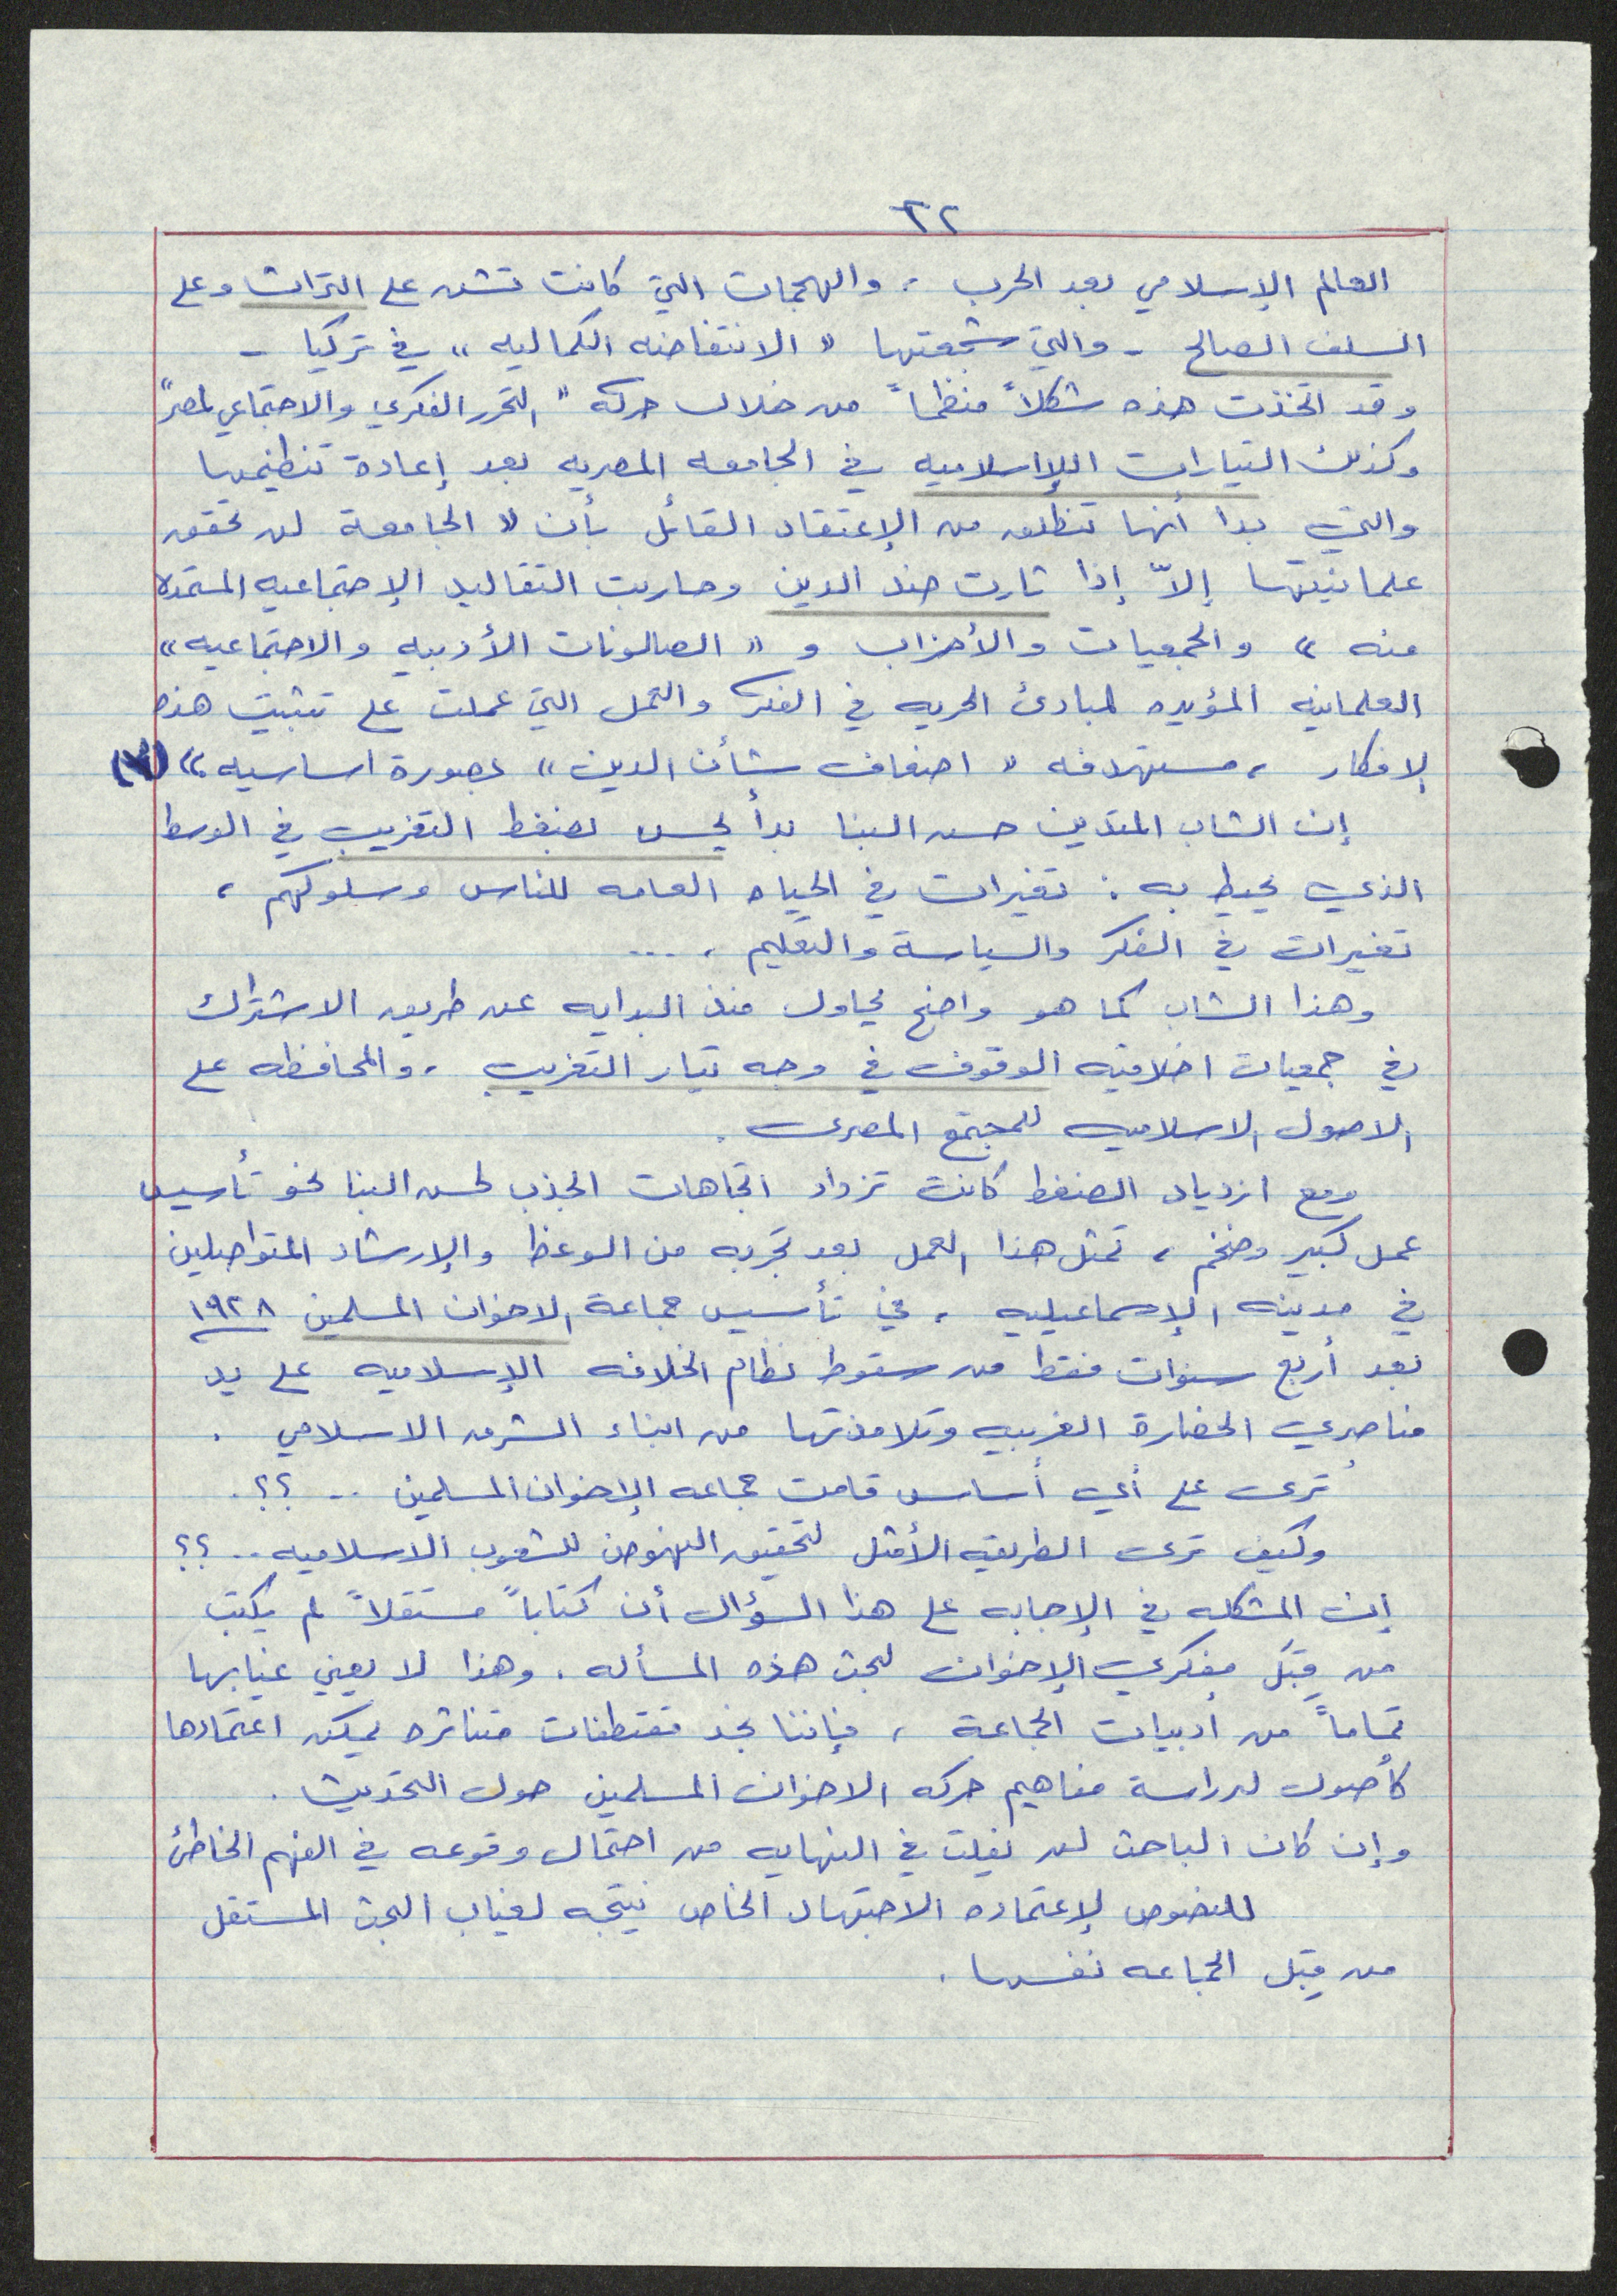 ٢٢
العالم الإسلامي بعد الحرب ، والهجمات التي كانت تشن على التراث وعلى
السلف الصالح - والتي شجعتها « الانتفاضه الكماليه » في تركيا -
وقد اتخذت هذه شكلاً منظماً من خلال حركه " التحرر الفكري والاجتماعي لمصر"
وكذلك التيارات اللاإسلاميه في الجامعه المصريه بعد إعادة تنظيمها
والتي بدا أنها تنطلق من الإعتقاد القائل بأن « الجامعة لن تحقق
علمانيتها إلاّ إذا ثارت ضد الدين وحاربت التقاليد الإجتماعيه المستمده
منه » والجمعيات والأحزاب و « الصالونات الأدبيه والاجتماعيه »
العلمانيه المؤيده لمبادئ الحريه في الفكر والعمل التي عملت على تثبيت هذه
الافكار ، مستهدفه « اضعاف شأن الدين » بصورة اساسيه . »
إن الشاب المتدين حسن البنا بدأ يحس بضغط التغريب في الوسط
الذي يحيط به : تغيرات في الحياه العامه للناس وسلوكهم ،
تغيرات في الفكر والسياسة والتعليم ، ...
وهذا الشاب كما هو واضح يحاول منذ البدايه عن طريق الاشتراك
في جمعيات اخلاقيه الوقوف في وجه تيار التغريب ، والمحافظه على
الاصول الاسلاميه للمجتمع المصرى .
ومع ازدياد الضغط كانت تزداد اتجاهات الجذب لحسن البنا نحو تأسيس
عمل كبير وضخم ، تمثل هذا العمل بعد تجربه من الوعظ والإرشاد المتواصلين
في مدينه الإسماعيليه ، في تأسيس جماعة الاخوان المسلمين ١٩٢٨
بعد أربع سنوات فقط من سقوط نظام الخلافه الإسلاميه على يد
مناصري الحضارة الغربيه وتلامذتها من ابناء الشرق الاسلامي .
تُرى على أي أساس قامت جماعه الإخوان المسلمين .. ؟؟.
وكيف ترى الطريقه الأمثل لتحقيق النهوض للشعوب الاسلاميه .. ؟؟
إن المشكله في الإجابه على هذا السؤال أن كتاباً مستقلاً لم يكتب
من قِبَل مفكري الإخوان لبحث هذه المسأله . وهذا لا يعني غيابها
تماماً من ادبيات الجماعة ، فإننا نجد مقتطفات متناثره يمكن اعتمادها
كأصول لدراسة مفاهيم حركه الاخوان المسلمين حول التحديث .
وإن كان الباحث لن يفلت في النهايه من احتمال وقوعه في الفهم الخاطئ
للنصوص لإعتماده الاجتهاد الخاص نتيجه لغياب البحث المستقل
من قِبَل الجماعه نفسها .